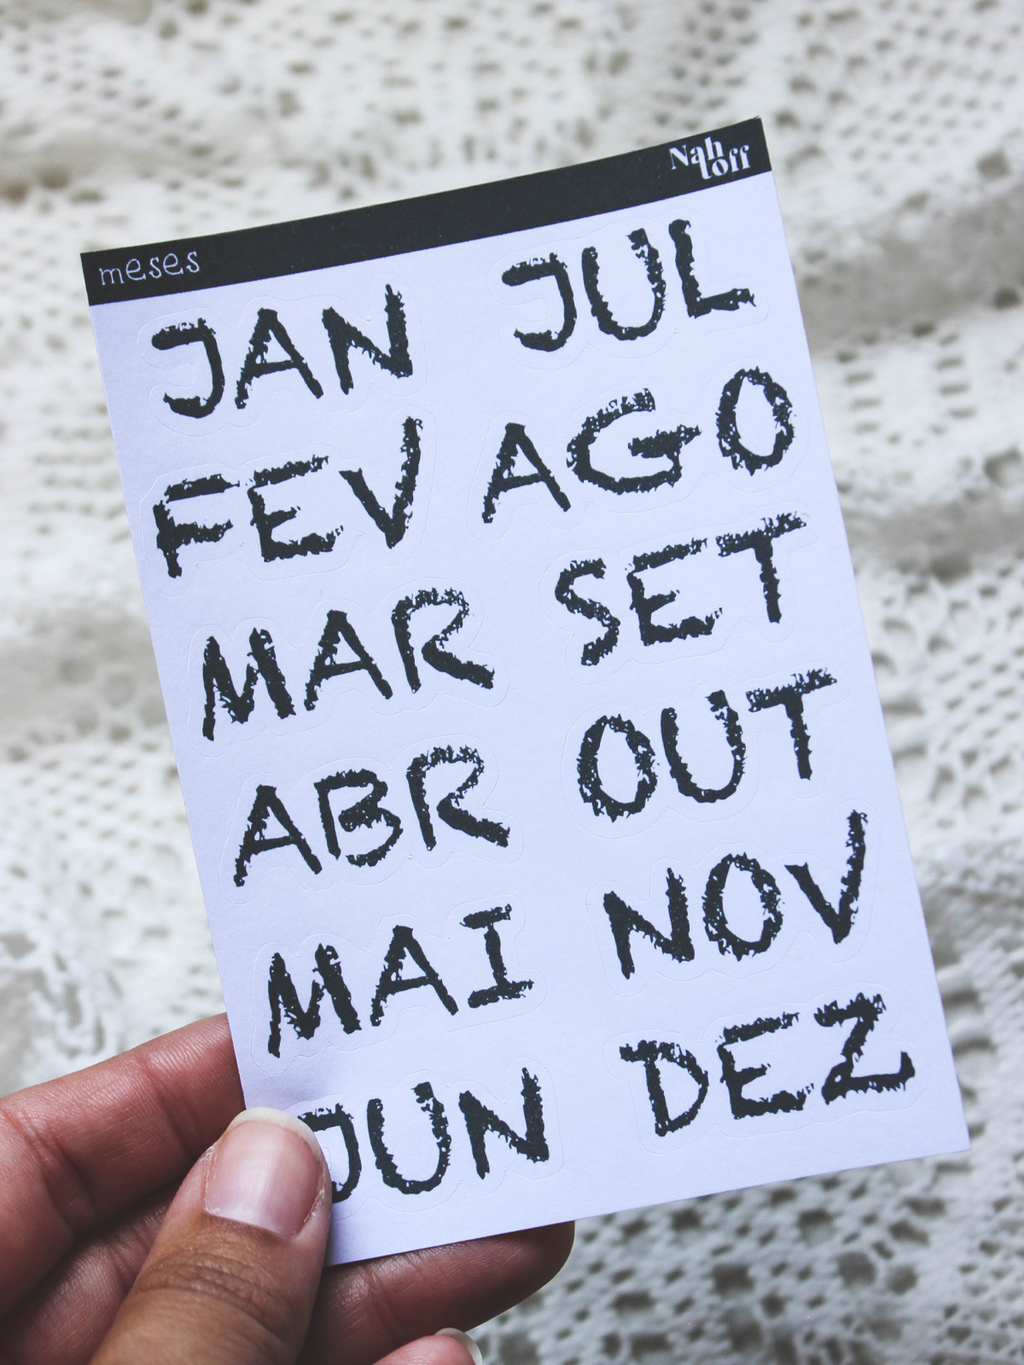 meses
Nah Toff
JAN
FEV
MAR
ABR
MAI
JUN
JUL
AGO
SET
OUT
NOV
DEZ